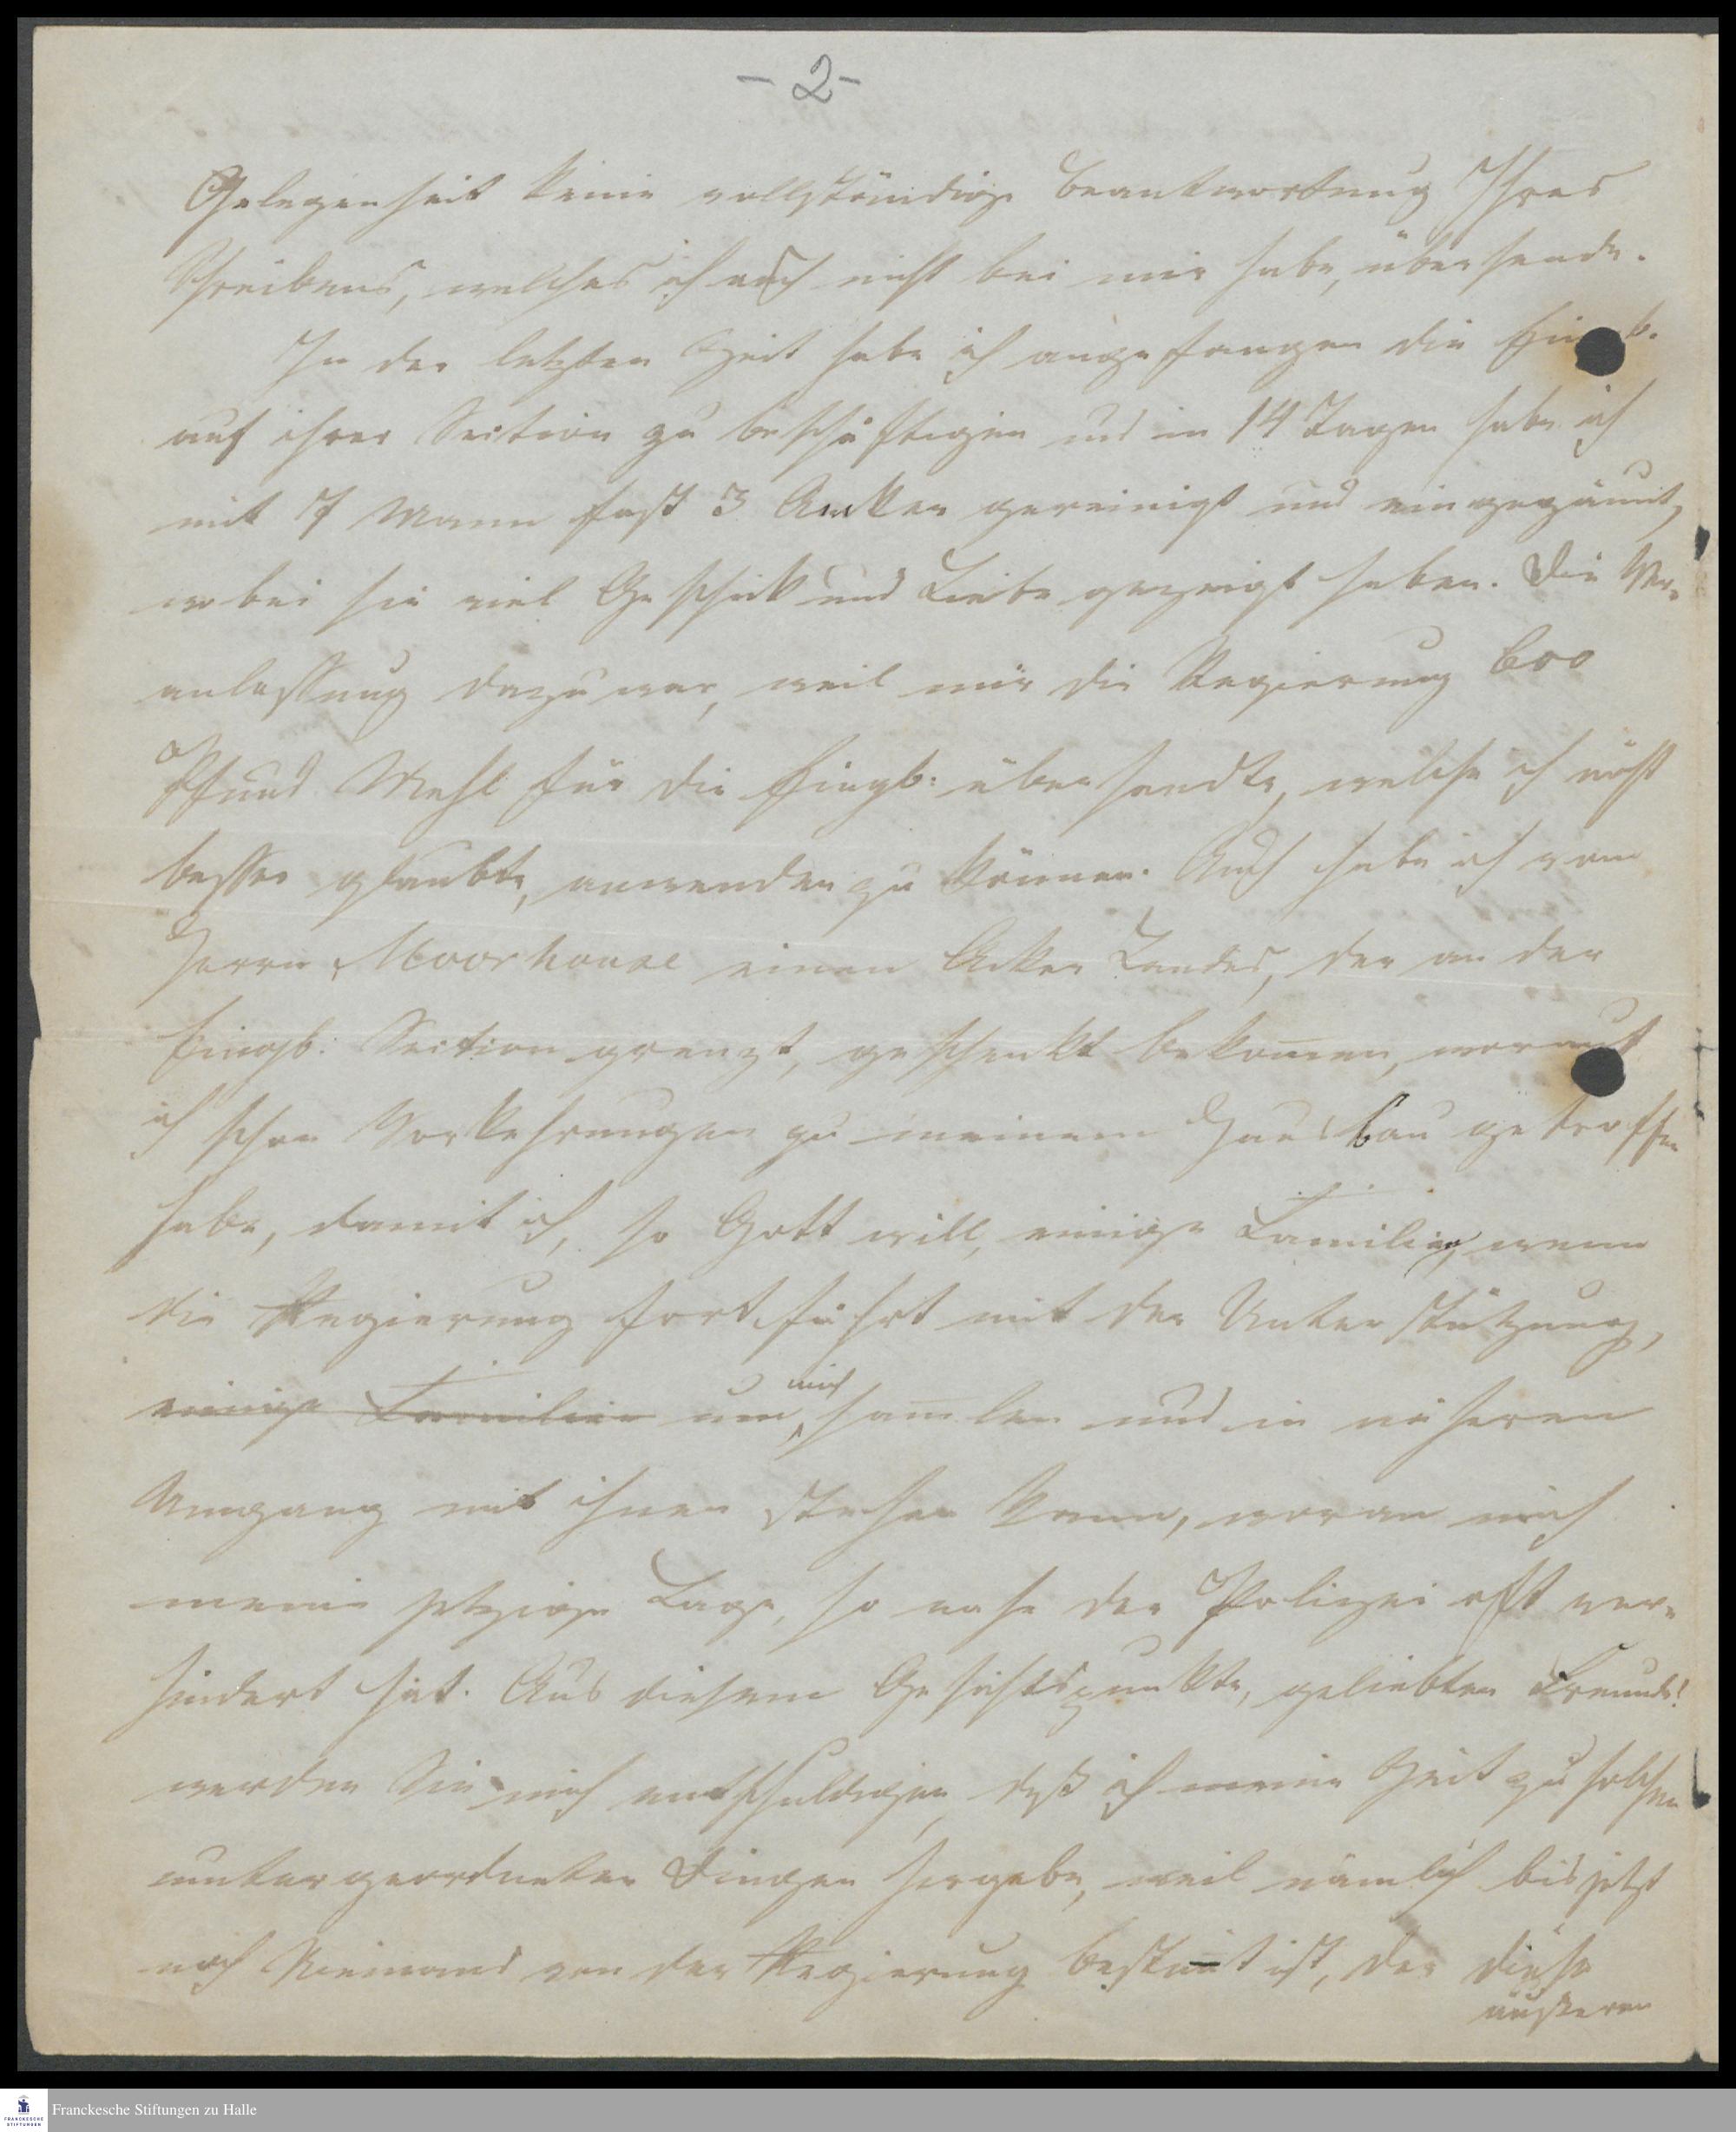 - 2 -
Gelegenheit keine vollständige Beantwortung Ihres
Schreibens, welches ich auch nicht bei mir habe, übersende.
In der letzten Zeit habe ich angefangen die Eingb.
auf ihrer Section zu beschäftigen und in 14 Tagen habe ich
mit 7 Mann fast 3 Acker gereinigt und eingezäunt,
wobei sie viel Geschick und Liebe gezeigt haben. Die Ver-
anlassung dazu war, weil mir die Regierung 600
Pfund Mehl für die Eingb: übersandte, welche ich nicht
besser glaubte, anwenden zu können. Auch habe ich vom
Herrn Moorhouse einen Acker Landes, der an der
Eingb: Section grenzt, geschenkt bekom̄en, worauf
ich schon Vorkehrungen zu meinem Hausbau getroffen
habe, damit ich, so Gott will, einige Familien, wenn
die Regierung fortfährt mit der Unterstützung,
einige Familien um mich sam̄len und in näherem
Umgang mit ihnen stehen kann, woran mich
meine jetzige Lage, so nahe der Polizei oft ver-
hindert hat. Aus diesem Gesichtspunkte, geliebter Freund!
werden Sie mich entschuldigen, daß ich meine Zeit zu solchen
untergeordneten Dingen hergebe, weil nämlich bis jetzt
noch Niemand von der Regierung bestim̄t ist, der diese
äußeren
Franckesche Stiftungen zu Halle
FRANCKESCHE
STIFTUNGEN